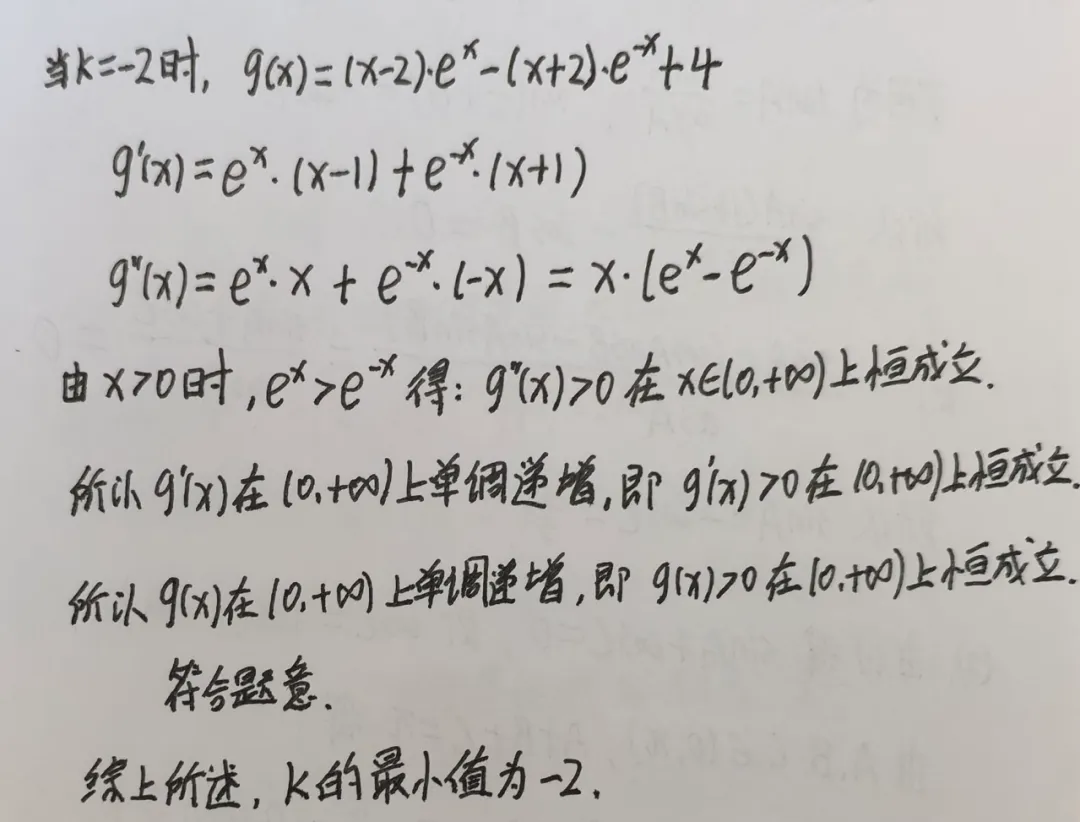 当k=-2时, g(x)=(x-2)·eˣ-(x+2)·e⁻ˣ+4
g'(x)=eˣ·(x-1)+e⁻ˣ·(x+1)
g"(x)=eˣ·x+e⁻ˣ·(-x)=x·(eˣ-e⁻ˣ)
由x>0时,eˣ>e⁻ˣ得:g"(x)>0在x∈(0,+∞)上恒成立.
所以g'(x)在(0,+∞)上单调递增,即g'(x)>0在(0,+∞)上恒成立.
所以g(x)在(0,+∞)上单调递增,即g(x)>0在(0,+∞)上恒成立.
符合题意.
综上所述,k的最小值为-2.